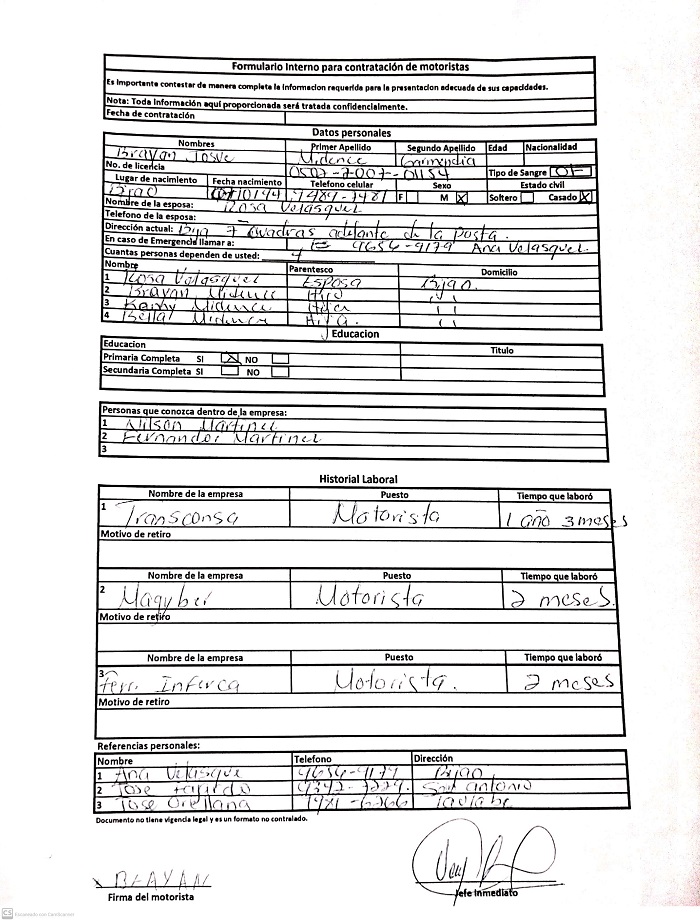 Formulario Interno para contratación de motoristas
Es importante contestar de manera completa la informacion requerida para la presentacion adecuada de sus capacidades.
Nota: Toda información aquí proporcionada será tratada confidencialmente.
Fecha de contratación
Datos personales
Nombres Primer Apellido Segundo Apellido Edad Nacionalidad
Brayan Josue Midence Garmendia
No. de licericia 0502-2007-01154 Tipo de Sangre
Lugar de nacimiento Fecha nacimiento Telefono celular Sexo Estado civil
F M X Soltero Casado X
Nombre de la esposa: Rosa Velasquez
Telefono de la esposa:
Dirección actual: 7 cuadras adelante de la posta.
En caso de Emergencia llamar a: 9656-9179 Ana Velasquez.
Cuantas personas dependen de usted: 4
Nombre Parentesco Domicilio
1 Rosa Velasquez Esposa Bijao.
2 Brayan Midence Hijo
3 Midence Hija
4 Midence Hija.
Educacion
Educacion Titulo
Primaria Completa SI X NO
Secundaria Completa SI NO
Personas que conozca dentro de la empresa:
1 Nilson Martinez
2 Fernando Martinez
3
Historial Laboral
Nombre de la empresa Puesto Tiempo que laboró
1 Transconsa Motorista 1 año 3 meses
Motivo de retiro
Nombre de la empresa Puesto Tiempo que laboró
2 Magyber Motorista 2 meses.
Motivo de retiro
Nombre de la empresa Puesto Tiempo que laboró
3 Ferr. Inferca Motorista. 2 meses
Motivo de retiro
Referencias personales:
Nombre Telefono Dirección
1 Ana Velasque 9656-9179 Bijao
2 Jose Fajardo San antonio
3 Jose Orellana Taulabe
Documento no tiene vigencia legal y es un formato no contralado.
X BRAYAN
Firma del motorista Jefe inmediato
CS Escaneado con CamScanner